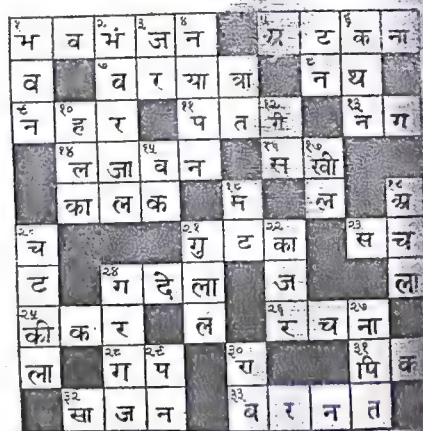 १भ व २भं ज ३ ४न ५ग्र ट क ६ना
व ७ब र या त्रा ८न थ
९न १०ह र ११प त १२गी १३न ग
१४ल जा १५व न १६स १७खी
का ल क १८म ल १९अ
२०च २१गु ट २२का २३स च
ट २४ग दे ला ज ला
२५की क र ल २६र च २७ना
ला २८ग २९प ३०रा ३१पि क
३२सा ज न ३३ब र न त